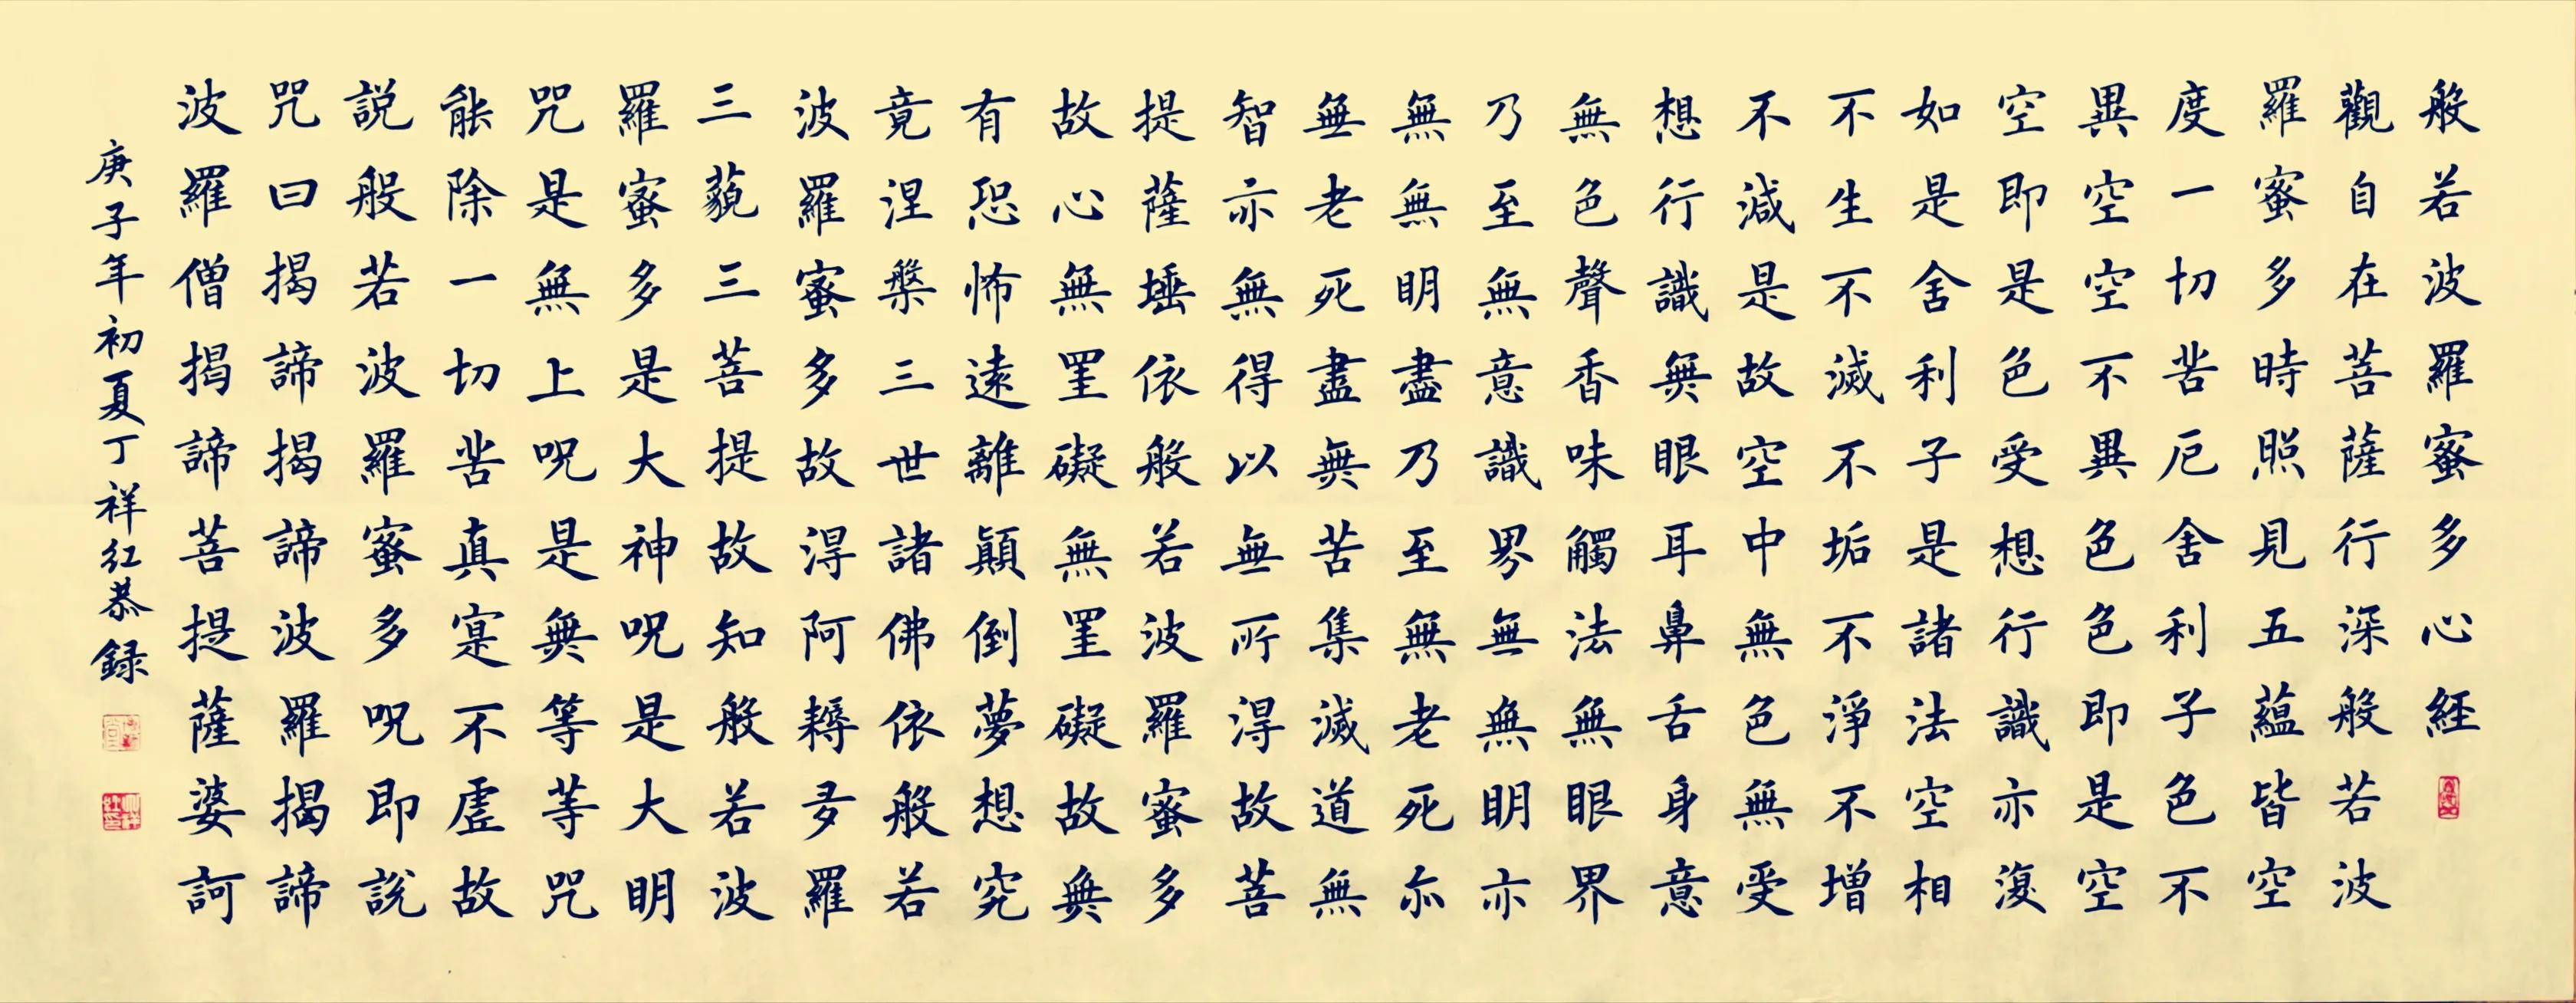 般若波羅蜜多心経
觀自在菩薩行深般若波
羅蜜多時照見五蘊皆空
度一切苦厄舍利子色不
異空空不異色色即是空
空即是色受想行識亦復
如是舍利子是諸法空相
不生不滅不垢不淨不增
不減是故空中無色無受
想行識無眼耳鼻舌身意
無色聲香味觸法無眼界
乃至無意識界無無明亦
無無明盡乃至無老死亦
無老死盡無苦集滅道無
智亦無得以無所得故菩
提薩埵依般若波羅蜜多
故心無罣礙無罣礙故無
有恐怖遠離顛倒夢想究
竟涅槃三世諸佛依般若
波羅蜜多故得阿耨多羅
三藐三菩提故知般若波
羅蜜多是大神呪是大明
咒是無上呪是無等等咒
能除一切苦真寔不虛故
説般若波羅蜜多呪即說
咒曰揭諦揭諦波羅揭諦
波羅僧揭諦菩提薩婆訶
庚子年初夏丁祥红恭録